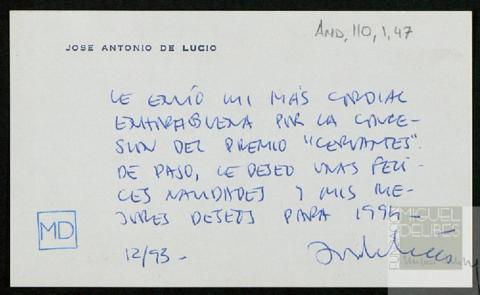 AND, 110, 1, 47
JOSE ANTONIO DE LUCIO
LE ENVÍO MI MÁS CORDIAL
ENHORABUENA POR LA CONCE-
SIÓN DEL PREMIO "CERVANTES".
DE PASO, LE DESEO UNAS FELI-
CES NAVIDADES Y MIS ME-
JORES DESEOS PARA 1994-
12/93-
MD
MIGUEL
DELIBES